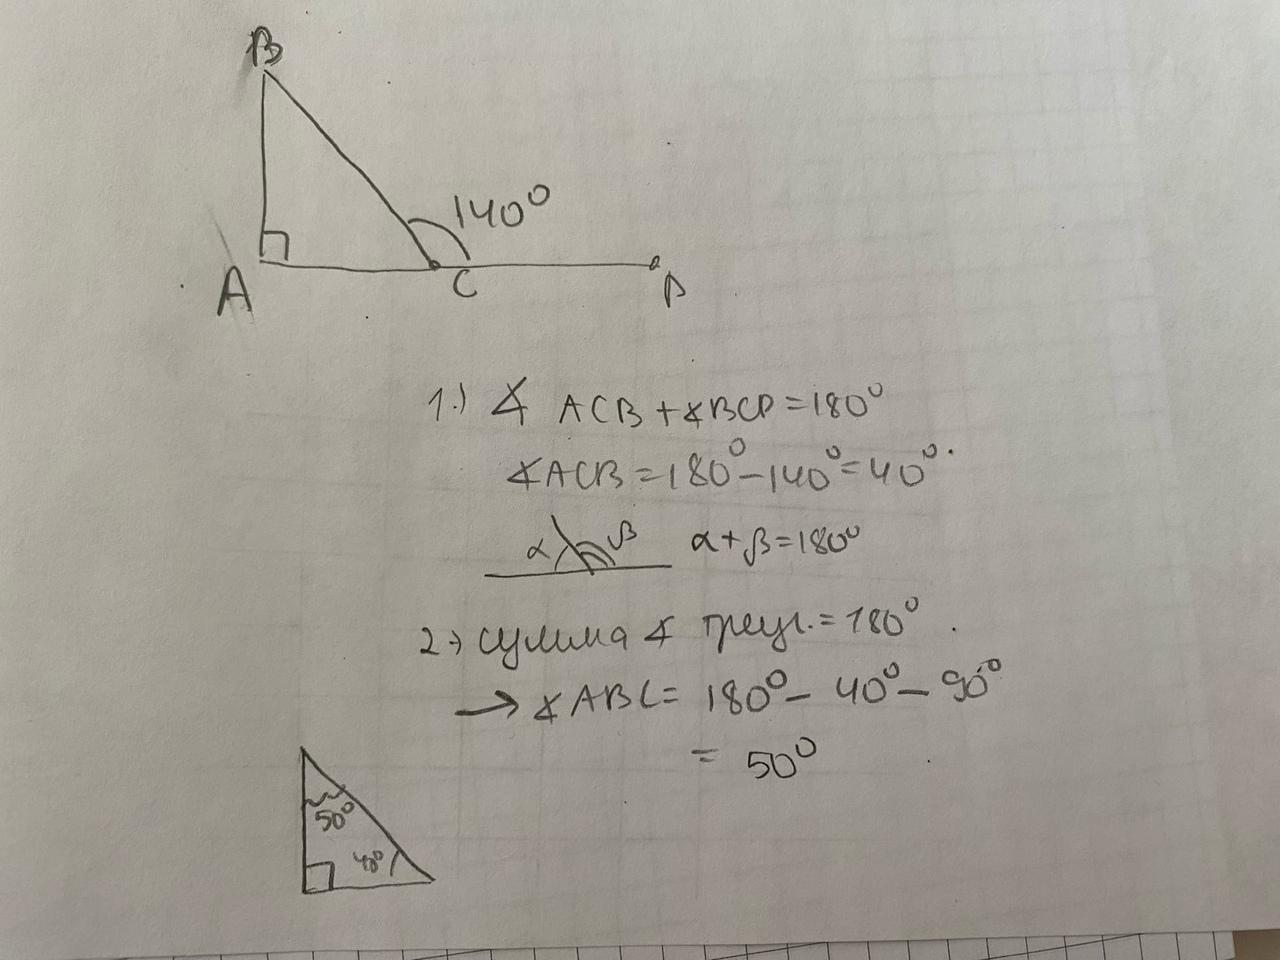 B
140°
A
C
D
1.) ∡ ACB + ∡BCD = 180°
∡ACB = 180° - 140° = 40°.
α β α + β = 180°
2.) сумма ∡ треуг. = 180°.
→ ∡ ABC = 180° - 40° - 90°
= 50°
50°
40°